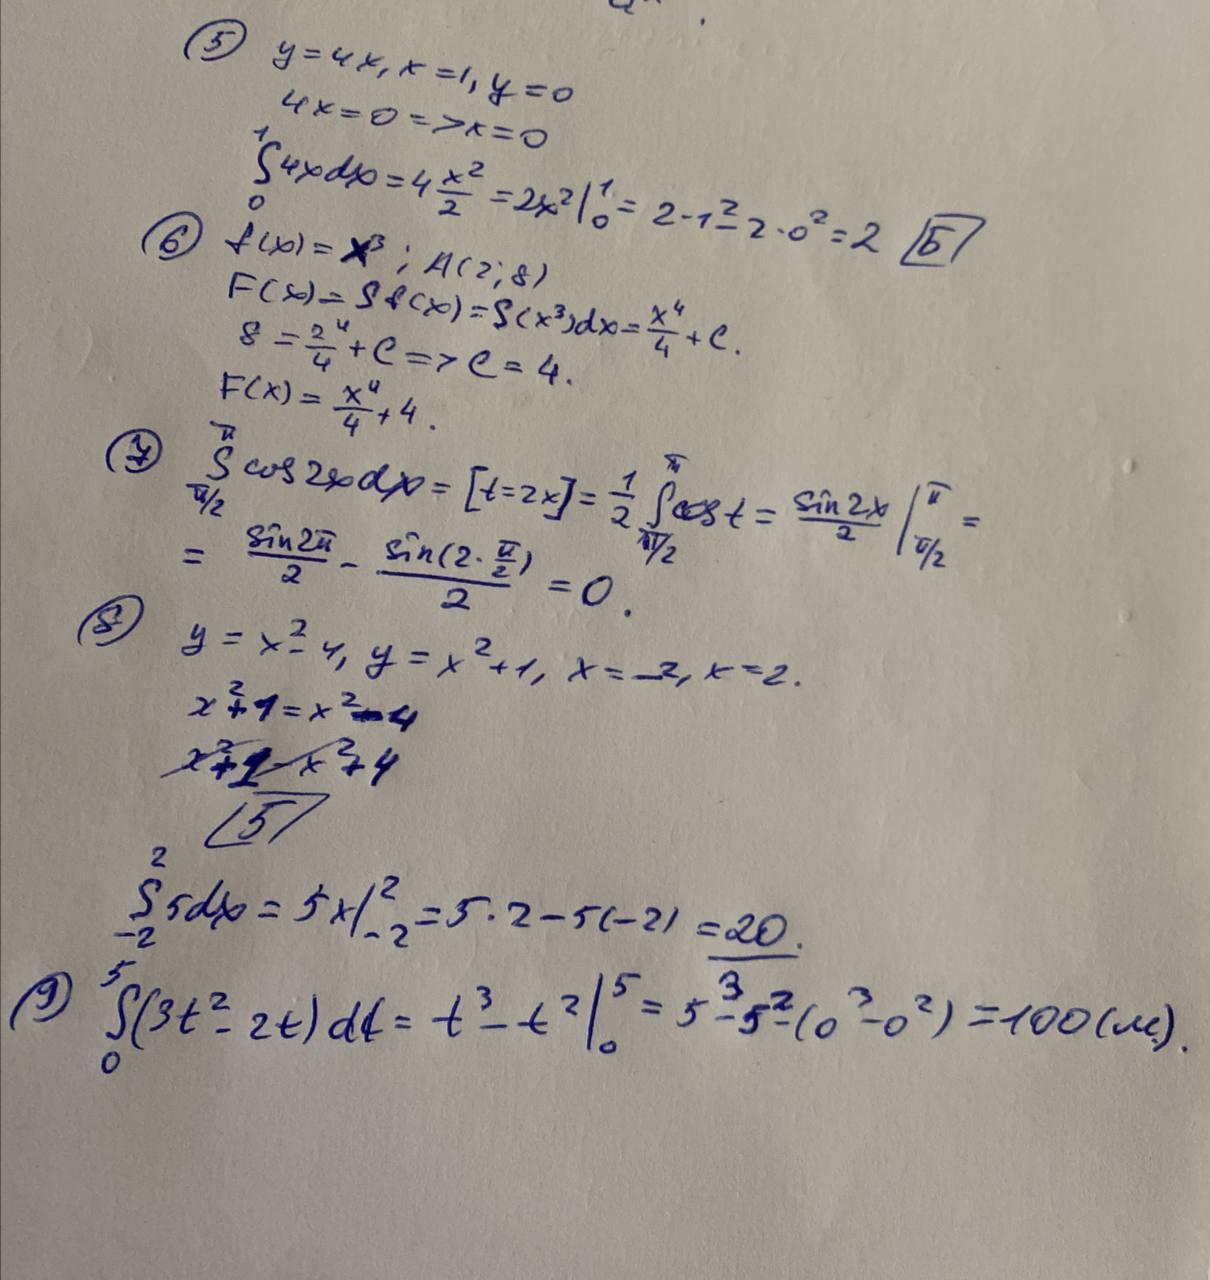 ⑤ y=4x, x=1, y=0
4x=0=>x=0
∫₀¹4xdx=4 x²/2 =2x²|₀¹= 2·1²-2·0²=2 Б
⑥ f(x)=x³; A(2;8)
F(x)=∫f(x)=∫(x³)dx= x⁴/4 +C.
8= 2⁴/4 +C=>C=4.
F(x)= x⁴/4 +4.
⑦ ∫_{π/2}^{π} cos2xdx=[t=2x]= 1/2 ∫_{π/2}^{π} cost= sin2x/2 |_{π/2}^{π} =
= sin2π/2 - sin(2·π/2)/2 =0.
⑧ y=x²-4, y=x²+1, x=-2, x=2.
x²+1=x²-4
x²+1-x²+4
5
∫₋₂²5dx=5x|₋₂²=5·2-5(-2)=20.
⑨ ∫₀⁵(3t²-2t)dt=t³-t²|₀⁵=5³-5²-(0³-0²)=100(м).